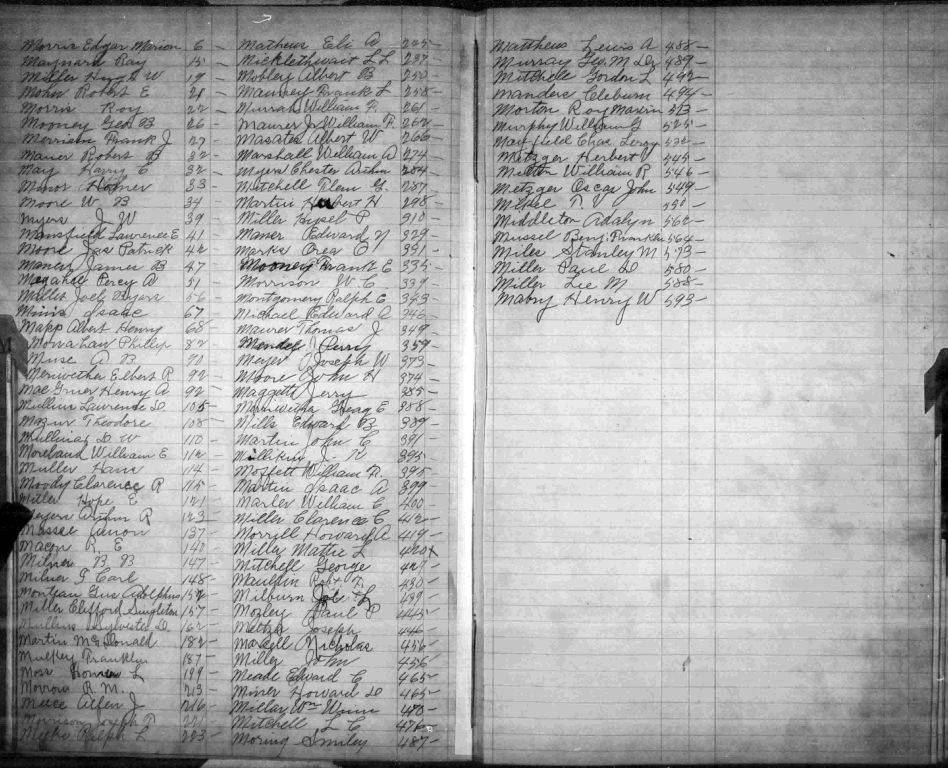 Morris Edgar Marion 6 -
Maynard Ray 15 -
Miller W 19 -
Maher Robert E 21 -
Morris Roy 22 -
Mooney Geo B 26 -
Morrison Frank J 27 -
Maner Robert B 32 -
May Harry C 32 -
Minor Homer 33 -
Moore W B 34 -
Myers J W 39 -
Mansfield Lawrence E 41 -
Moore Jos Patrick 42 -
James B 47 -
Percy A 51 -
Millet Joel Myers 56 -
Minis Isaac 67 -
Mapp Albert Henry 68 -
Monahan Phillip 82 -
Muse A B 90 -
Meriwether Elbert R 92 -
Mac Henry A 92 -
Mullin Lawrence D 105 -
Mazur Theodore 108 -
D W 110 -
Moreland William E 112 -
Muller Hans 114 -
Moody Clarence R 115 -
Miller Hope E 121 -
Meyers Arthur R 123 -
Junior 137 -
Macon R. E 140 -
Milner B B 147 -
Milner G Carl 148 -
Gus Adolphus 152 -
Miller Clifford Singleton 157 -
Mullins Sylvester D 162 -
Martin McDonald 182 -
Mulkey Franklin 187 -
Moss L 199 -
Morrow R. M. 213 -
Allen J 216 -
Morrison Joseph 221 -
Ralph L 223 -
Mathews Eli A 225 -
Micklethwait L L 237 -
Mobley Albert B 250 -
Frank L 258 -
Murrah William F. 261 -
Maurer Jr William F. 262 -
Masates Albert W 266 -
Marshall William A 274 -
Myers Chester Arthur 284 -
Mitchell G. 287 -
Martin H 298 -
Miller P 310 -
Maner Edward 329 -
Marks Orea C 331 -
Mooney Frank E 335 -
Morrison W C 339 -
Montgomery Ralph E 343 -
Michael Edward A 346 -
Maurer Thomas J 349 -
Mendel Perry 359 -
Meyer Joseph W 373 -
Moore John H 374 -
Maggett Jerry 385 -
E 388 -
Mills Edward B 389 -
Martin John C 391 -
Millikin J K 395 -
Moffett William F. 395 -
Martin Isaac A 399 -
Marler William E 400 -
Miller Clarence C 412 -
Morrill Howard A 419 -
Milly Mattie L
Mitchell George 427 -
Maulpin Robt F. 430 -
Milburn L 439 -
Mozley Paul P 445 -
Joseph 446 -
Nicholas 456 -
Miller John 456 -
Meade Edward C 465 -
Miner Howard D 465 -
Millar Wm Winn 470 -
Mitchell L C 476 -
Moring Smiley 487 -
Matthews Lewis A 488 -
Murray Geo. M Dr 489 -
Mitchell Gordon L 492 -
Manderc Cleburn 494 -
Morton Roy Marvin 513 -
Murphy William G 525 -
Mayfield Chas Leroy 532 -
Metzger Herbert 545 -
William R 546 -
Metzger Oscar John 549 -
T. V 550 -
Middleton Adalyn 562 -
Mussel Benj. Franklin 564 -
Miles Stanley M 573 -
Miller Paul D 580 -
Miller Lee M 588 -
Mabry Henry W 593 -